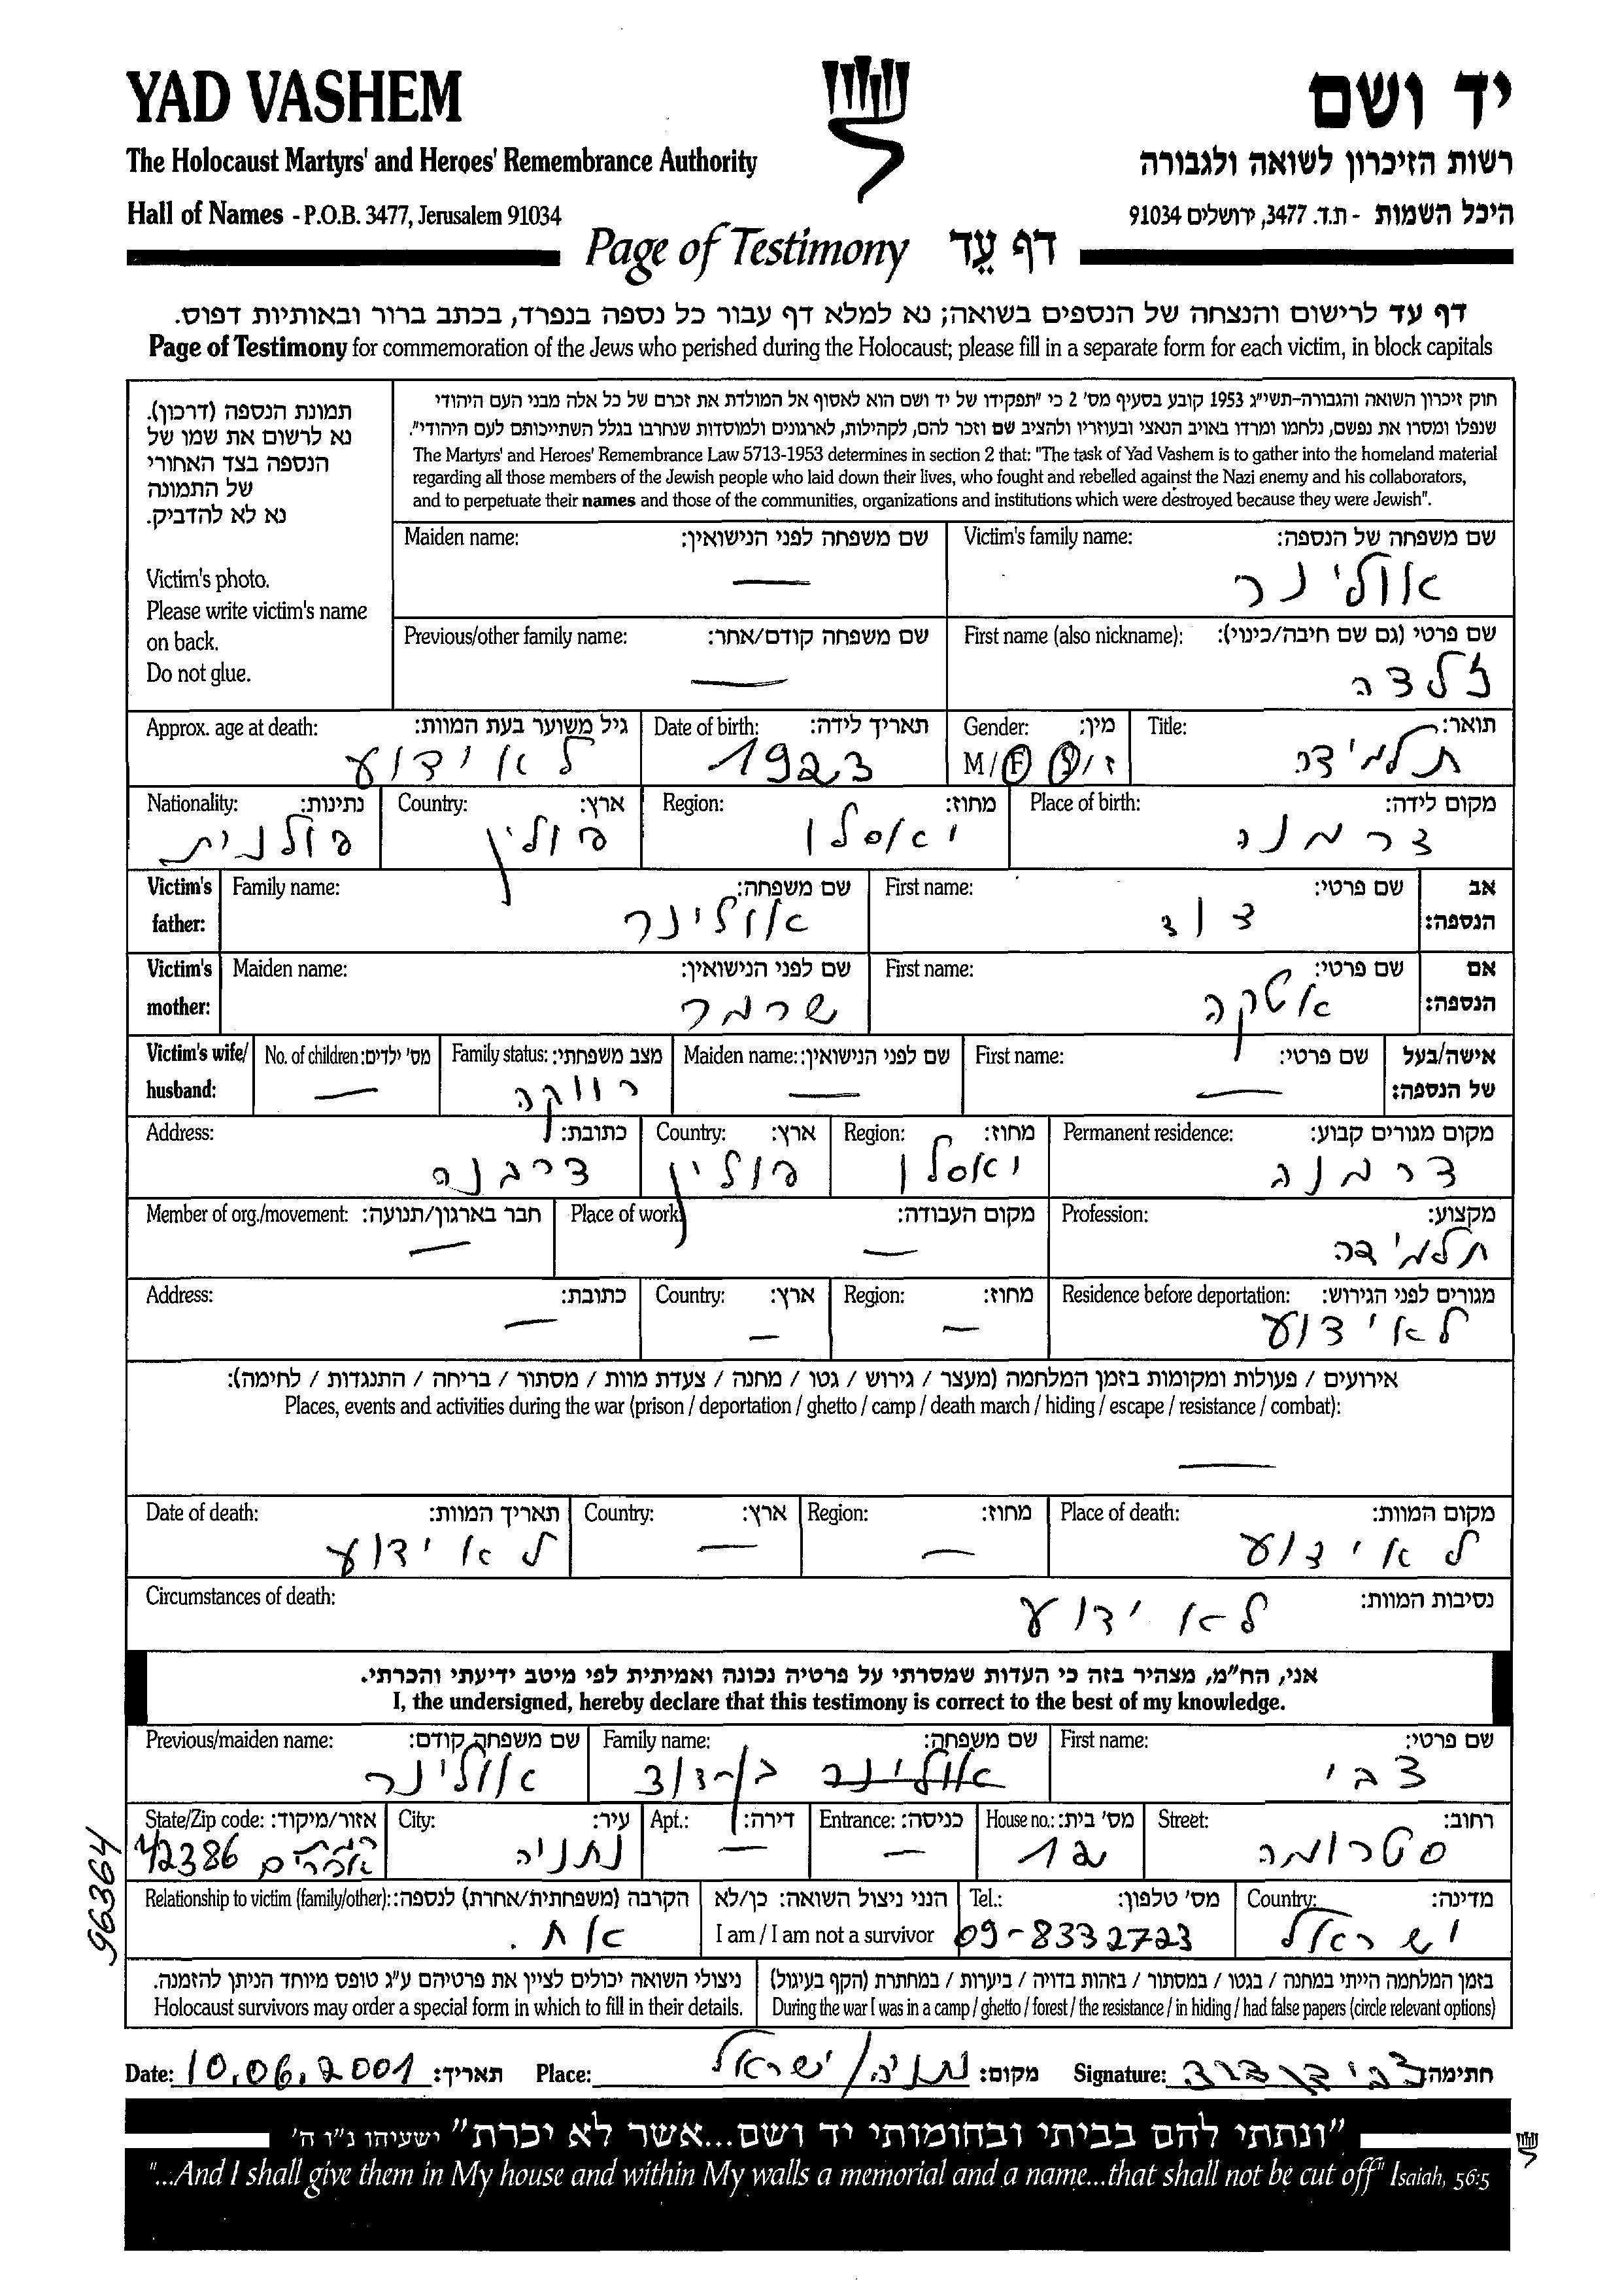 YAD VASHEM
יד ושם
The Holocaust Martyrs' and Heroes' Remembrance Authority
רשות הזיכרון לשואה ולגבורה
Hall of Names - P.O.B. 3477, Jerusalem 91034
היכל השמות - ת.ד. 3477, ירושלים 91034
Page of Testimony דף עֵד
דף עד לרישום והנצחה של הנספים בשואה; נא למלא דף עבור כל נספה בנפרד, בכתב ברור ובאותיות דפוס.
Page of Testimony for commemoration of the Jews who perished during the Holocaust; please fill in a separate form for each victim, in block capitals
תמונת הנספה (דרכון).
נא לרשום את שמו של
הנספה בצד האחורי
של התמונה
נא לא להדביק.
Victim's photo.
Please write victim's name
on back.
Do not glue.
חוק זיכרון השואה והגבורה-תשי"ג 1953 קובע בסעיף מס' 2 כי "תפקידו של יד ושם הוא לאסוף אל המולדת את זכרם של כל אלה מבני העם היהודי
שנפלו ומסרו את נפשם, נלחמו ומרדו באויב הנאצי ובעוזריו ולהציב שם וזכר להם, לקהילות, לארגונים ולמוסדות שנחרבו בגלל השתייכותם לעם היהודי".
The Martyrs' and Heroes' Remembrance Law 5713-1953 determines in section 2 that: "The task of Yad Vashem is to gather into the homeland material
regarding all those members of the Jewish people who laid down their lives, who fought and rebelled against the Nazi enemy and his collaborators,
and to perpetuate their names and those of the communities, organizations and institutions which were destroyed because they were Jewish".
Victim's family name: שם משפחה של הנספה:
אולינר
Maiden name: שם משפחה לפני הנישואין:
—
First name (also nickname): שם פרטי (גם שם חיבה/כינוי):
זלדה
Previous/other family name: שם משפחה קודם/אחר:
—
Title: תואר:
תלמידה
Gender: מין:
M/F ז/נ
Date of birth: תאריך לידה:
1923
Approx. age at death: גיל משוער בעת המוות:
לא ידוע
Place of birth: מקום לידה:
צרמנה
Region: מחוז:
יאסלו
Country: ארץ:
פולין
Nationality: נתינות:
פולנית
Victim's father: אב הנספה:
First name: שם פרטי:
דוד
Family name: שם משפחה:
אולינר
Victim's mother: אם הנספה:
First name: שם פרטי:
אטקה
Maiden name: שם לפני הנישואין:
שרמר
Victim's wife/husband: אישה/בעל של הנספה:
First name: שם פרטי:
—
Maiden name: שם לפני הנישואין:
—
Family status: מצב משפחתי:
רווקה
No. of children: מס' ילדים:
—
Permanent residence: מקום מגורים קבוע:
צרמנה
Region: מחוז:
יאסלו
Country: ארץ:
פולין
Address: כתובת:
Profession: מקצוע:
תלמידה
Place of work: מקום העבודה:
—
Member of org./movement: חבר בארגון/תנועה:
—
Residence before deportation: מגורים לפני הגירוש:
לא ידוע
Region: מחוז:
—
Country: ארץ:
—
Address: כתובת:
—
אירועים / פעולות ומקומות בזמן המלחמה (מעצר / גירוש / גטו / מחנה / צעדת מוות / מסתור / בריחה / התנגדות / לחימה):
Places, events and activities during the war (prison / deportation / ghetto / camp / death march / hiding / escape / resistance / combat):
—
Place of death: מקום המוות:
לא ידוע
Region: מחוז:
—
Country: ארץ:
—
Date of death: תאריך המוות:
לא ידוע
Circumstances of death: נסיבות המוות:
לא ידוע
אני, הח"מ, מצהיר בזה כי העדות שמסרתי על פרטיה נכונה ואמיתית לפי מיטב ידיעתי והכרתי.
I, the undersigned, hereby declare that this testimony is correct to the best of my knowledge.
First name: שם פרטי:
צבי
Family name: שם משפחה:
אולינר בן-דוד
Previous/maiden name: שם משפחה קודם:
אולינר
Street: רחוב:
סטרומה
House no.: מס' בית:
12
Entrance: כניסה:
—
Apt.: דירה:
—
City: עיר:
נתניה
State/Zip code: אזור/מיקוד:
42386
Country: מדינה:
ישראל
Tel.: מס' טלפון:
09-8332723
הנני ניצול השואה: כן/לא
I am / I am not a survivor
Relationship to victim (family/other): הקרבה (משפחתית/אחרת) לנספה:
אח.
בזמן המלחמה הייתי במחנה / בגטו / במסתור / בזהות בדויה / ביערות / במחתרת (הקף בעיגול)
During the war I was in a camp / ghetto / forest / the resistance / in hiding / had false papers (circle relevant options)
ניצולי השואה יכולים לציין את פרטיהם ע"ג טופס מיוחד הניתן להזמנה.
Holocaust survivors may order a special form in which to fill in their details.
Date: 10.06.2001 תאריך: Place: נתניה/ישראל מקום: Signature: צבי בן דוד חתימה:
"ונתתי להם בביתי ובחומותי יד ושם...אשר לא יכרת" ישעיהו נ"ו ה'
"...And I shall give them in My house and within My walls a memorial and a name...that shall not be cut off" Isaiah, 56:5
96364